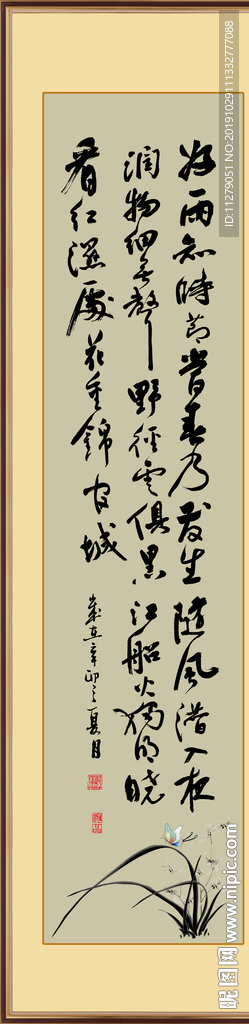 好雨知時節當春乃發生隨風潛入夜
潤物細無聲野徑雲俱黑江船火獨明曉
看紅濕處花重錦官城
歲在辛卯之夏月
ID:11279051 NO:20191029111332777088
昵图网 www.nipic.com